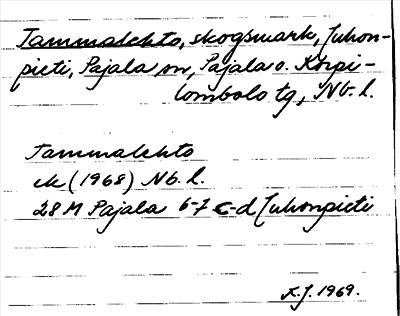 Tammalehto, skogsmark, Juhon-
pieti, Pajala sn, Pajala o. Korpi-
lombolo tg, Nb. l.
Tammalehto
ek (1968) Nb. l.
28 M Pajala 6-7 c-d Juhonpieti
K.J. 1969.